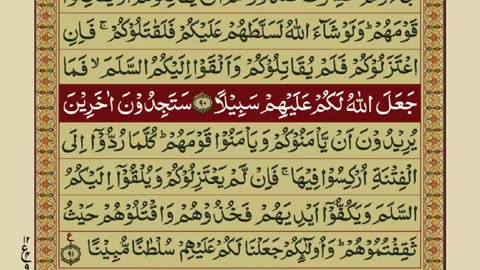 قَوْمَهُمْ ؕ وَلَوْ شَآءَ اللّٰهُ لَسَلَّطَهُمْ عَلَيْكُمْ فَلَقٰتَلُوْكُمْ ۚ فَاِنِ
اعْتَزَلُوْكُمْ فَلَمْ يُقَاتِلُوْكُمْ وَاَلْقَوْا اِلَيْكُمُ السَّلَمَ ۙ فَمَا
جَعَلَ اللّٰهُ لَكُمْ عَلَيْهِمْ سَبِيْلًا ﴿۹۰﴾ سَتَجِدُوْنَ اٰخَرِيْنَ
يُرِيْدُوْنَ اَنْ يَّاْمَنُوْكُمْ وَيَاْمَنُوْا قَوْمَهُمْ ؕ كُلَّمَا رُدُّوْۤا اِلَى
الْفِتْنَةِ اُرْكِسُوْا فِيْهَا ۚ فَاِنْ لَّمْ يَعْتَزِلُوْكُمْ وَيُلْقُوْۤا اِلَيْكُمُ
السَّلَمَ وَيَكُفُّوْۤا اَيْدِيَهُمْ فَخُذُوْهُمْ وَاقْتُلُوْهُمْ حَيْثُ
ثَقِفْتُمُوْهُمْ ؕ وَاُولٰٓئِكُمْ جَعَلْنَا لَكُمْ عَلَيْهِمْ سُلْطٰنًا مُّبِيْنًا ﴿۹۱﴾